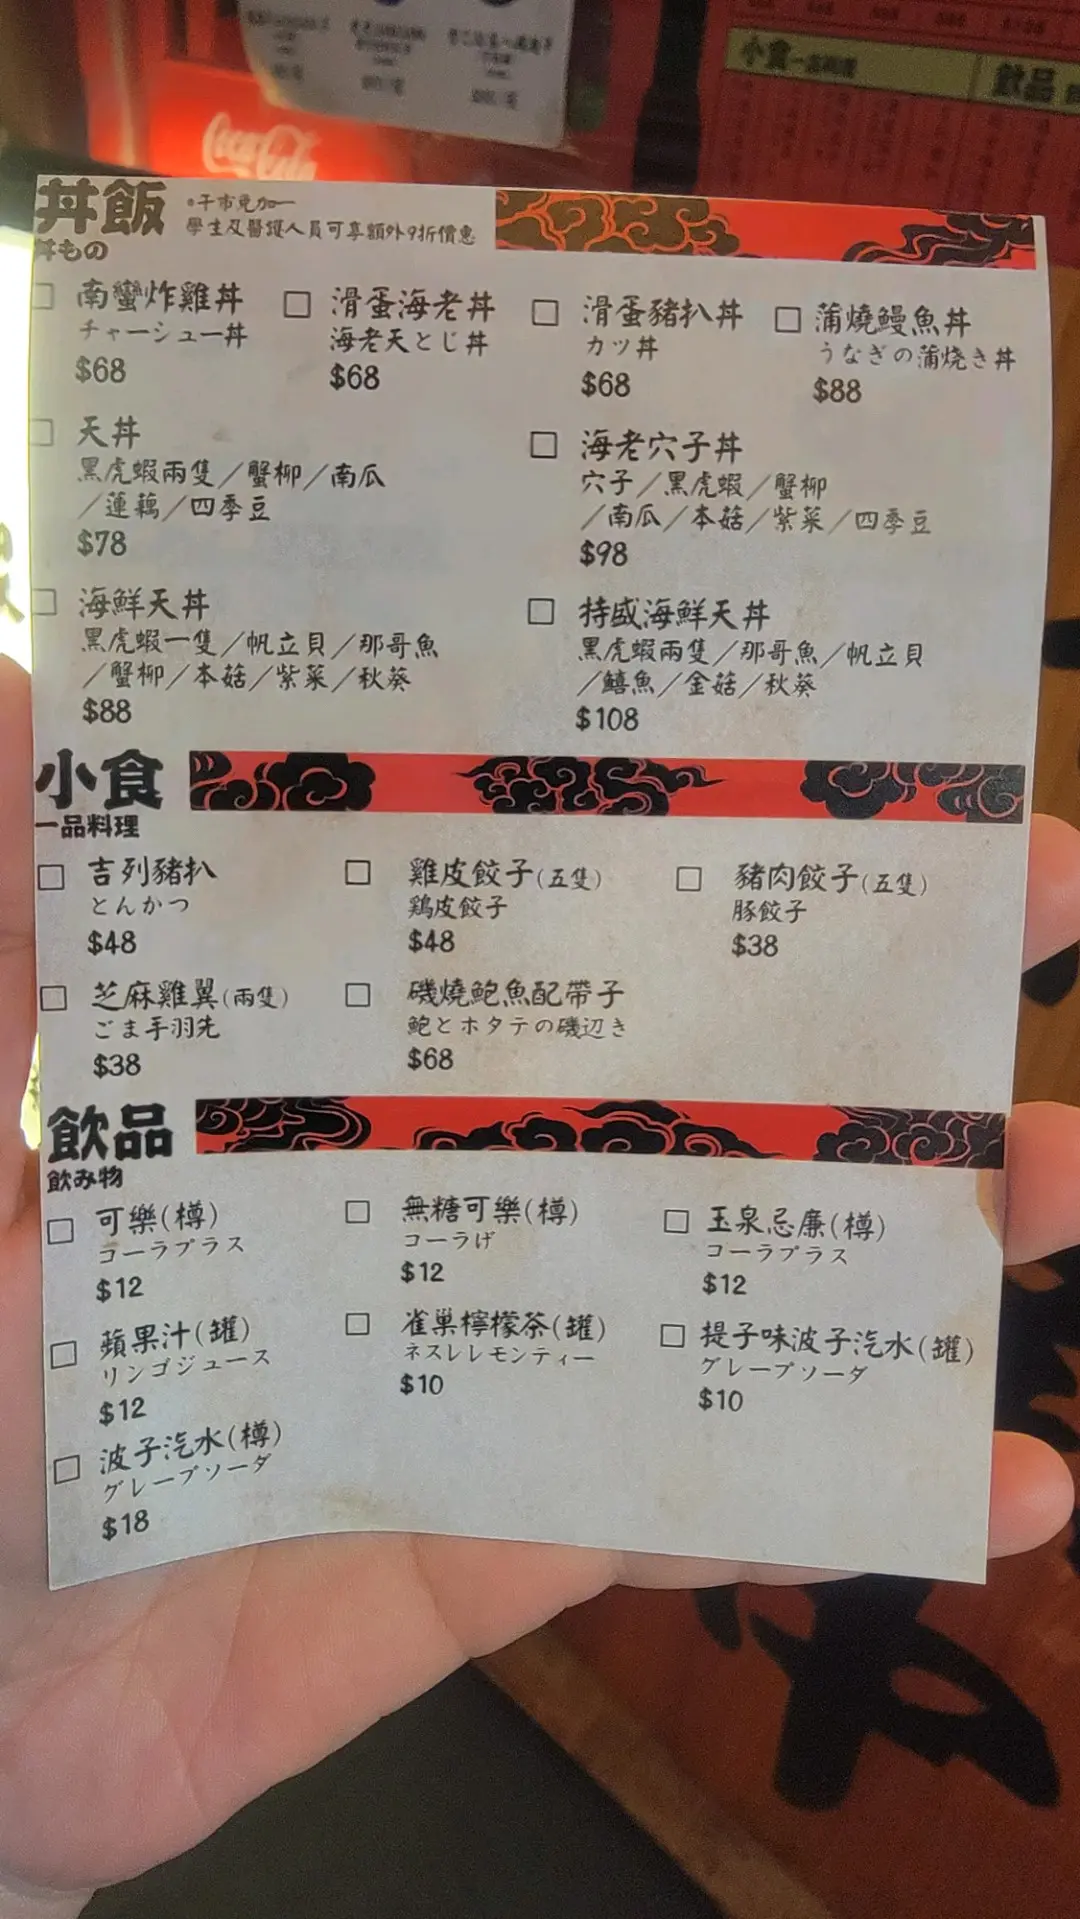 Coca-Cola
小食 一品料理
飲品
丼飯
丼もの
*午市免加一
學生及醫護人員可享額外9折價惠
□ 南蠻炸雞丼
チャーシュー丼
$68
□ 滑蛋海老丼
海老天とじ丼
$68
□ 滑蛋豬扒丼
カツ丼
$68
□ 蒲燒鰻魚丼
うなぎの蒲焼き丼
$88
□ 天丼
黑虎蝦兩隻／蟹柳／南瓜
／蓮藕／四季豆
$78
□ 海老穴子丼
穴子／黑虎蝦／蟹柳
／南瓜／本菇／紫菜／四季豆
$98
□ 海鮮天丼
黑虎蝦一隻／帆立貝／那哥魚
／蟹柳／本菇／紫菜／秋葵
$88
□ 特盛海鮮天丼
黑虎蝦兩隻／那哥魚／帆立貝
／鱚魚／金菇／秋葵
$108
小食
一品料理
□ 吉列豬扒
とんかつ
$48
□ 雞皮餃子(五隻)
鶏皮餃子
$48
□ 豬肉餃子(五隻)
豚餃子
$38
□ 芝麻雞翼(兩隻)
ごま手羽先
$38
□ 磯燒鮑魚配帶子
鮑とホタテの磯辺き
$68
飲品
飲み物
□ 可樂(樽)
コーラプラス
$12
□ 無糖可樂(樽)
コーラげ
$12
□ 玉泉忌廉(樽)
コーラプラス
$12
□ 蘋果汁(罐)
リンゴジュース
$12
□ 雀巢檸檬茶(罐)
ネスレレモンティー
$10
□ 提子味波子汽水(罐)
グレープソーダ
$10
□ 波子汽水(樽)
グレープソーダ
$18